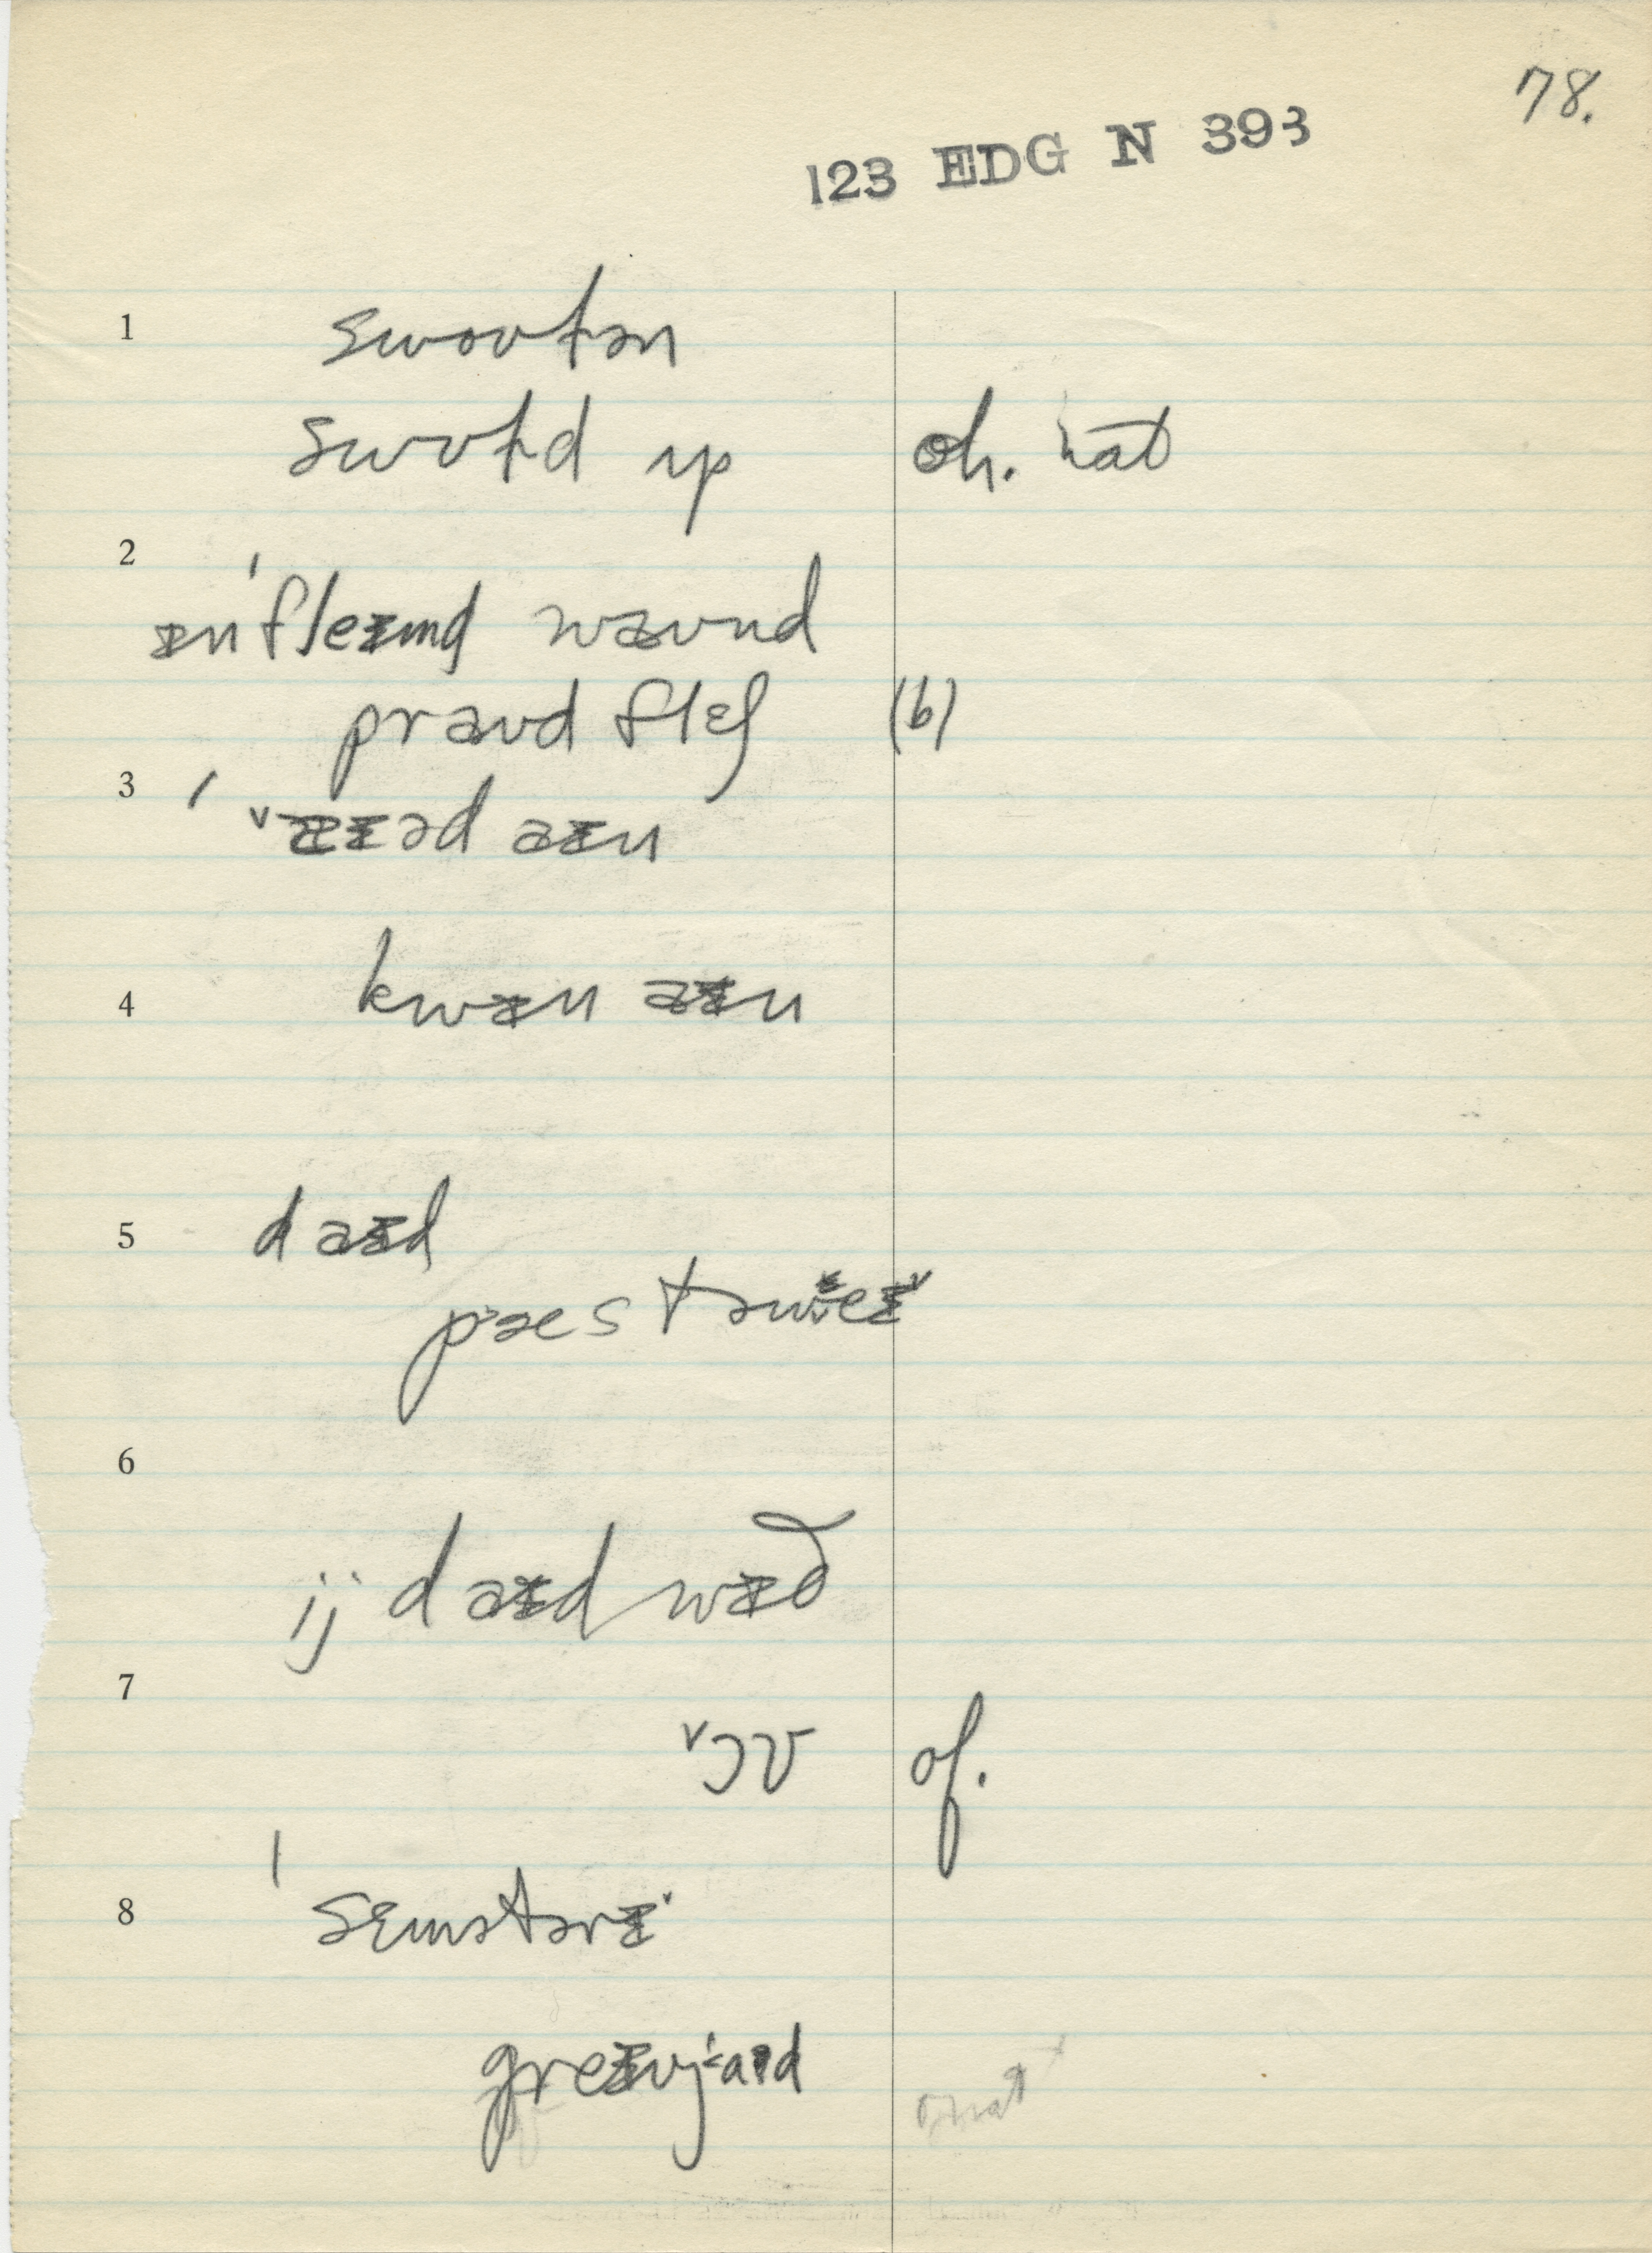 78.
123 EDG N 393
1 swoʊtən
swoʊtd ʌp oh. nat
2 ɪnˈfleɪmd wəʊnd
praʊd fleʃ (b)
3 ˈ ˅æɪəd aɪn
4 kwɪn aɪn
5 daɪd
pəestəwɪeɪ˅
6 ɪj daɪd wɪð
7 ˅ɔv of.
8 ˈsɛmətərɪ˅
greɪvjaɪd